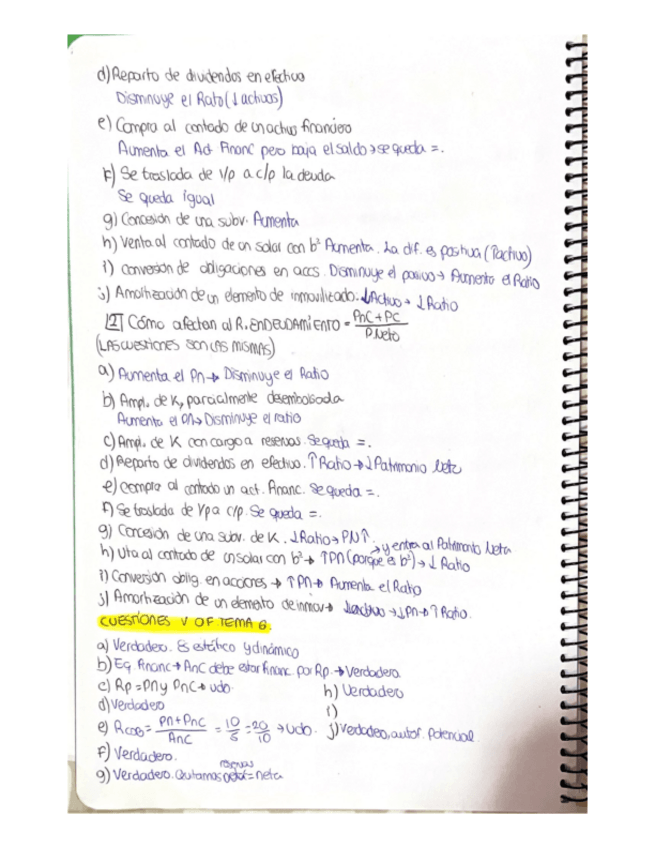 d) Reparto de dividendos en efectivo
Disminuye el Ratio (↓ activos)
e) Compra al contado de un activo financiero
Aumenta el Act Financ pero baja el saldo → se queda =.
f) Se traslada de l/p a c/p la deuda
Se queda igual
g) Concesión de una subv. Aumenta
h) Venta al contado de un solar con bº Aumenta. La dif. es positiva (↑activo)
i) Conversión de obligaciones en accs. Disminuye el pasivo → Aumenta el Ratio
j) Amortización de un elemento de inmovilizado: ↓Activo → ↓Ratio
2 Cómo afectan al R. ENDEUDAMIENTO = PnC + PC / P.Neto
(LAS CUESTIONES SON LAS MISMAS)
a) Aumenta el Pn → Disminuye el Ratio
b) Ampl. de K, parcialmente desembolsada
Aumenta el PN → Disminuye el ratio
c) Ampl. de K con cargo a reservas. Se queda =.
d) Reparto de dividendos en efectivo. ↑Ratio → ↓Patrimonio Neto
e) Compra al contado un act. Financ. Se queda =.
f) Se traslada de l/p a c/p. Se queda =.
g) Concesión de una subv. de K. ↓Ratio → PN↑.
→ y entra al Patrimonio Neto
h) Vta al contado de un solar con bº → ↑Pn (porque es bº) → ↓ Ratio
i) Conversión oblig. en acciones → ↑Pn → Aumenta el Ratio
j) Amortización de un elemento de inmov → ↓activo → ↓Pn → ↑ Ratio.
CUESTIONES V OF TEMA 6.
a) Verdadero. Es estático y dinámico
b) Eq Financ → AnC debe estar financ por Rp. → Verdadero.
c) Rp = Pn y PnC → vdo.
h) Verdadero
d) Verdadero
i)
e) Rcob = Pn + PnC / AnC = 10/5 = 20/10 → vdo.
j) Verdadero, autof. Potencial
f) Verdadero.
reservas
g) Verdadero. Quitamos = neta